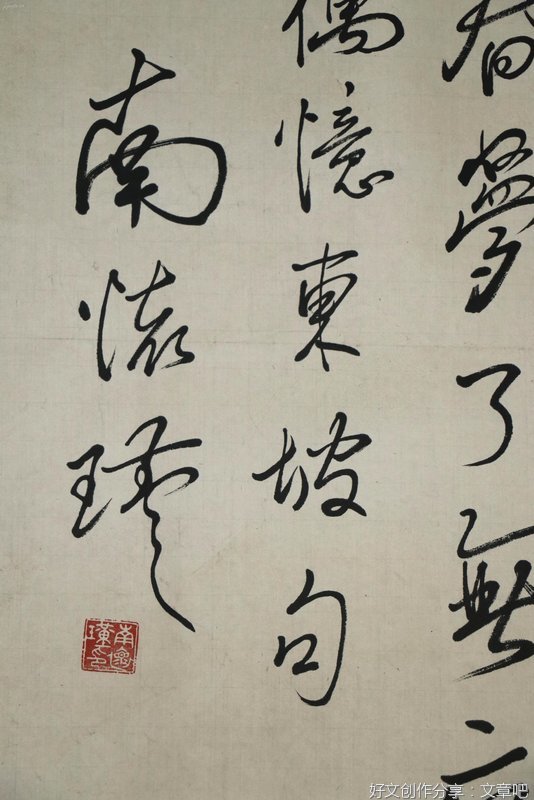 春夢了無
偶憶東坡句
南懷瑾
南懷瑾印
好文创作分享：文章吧